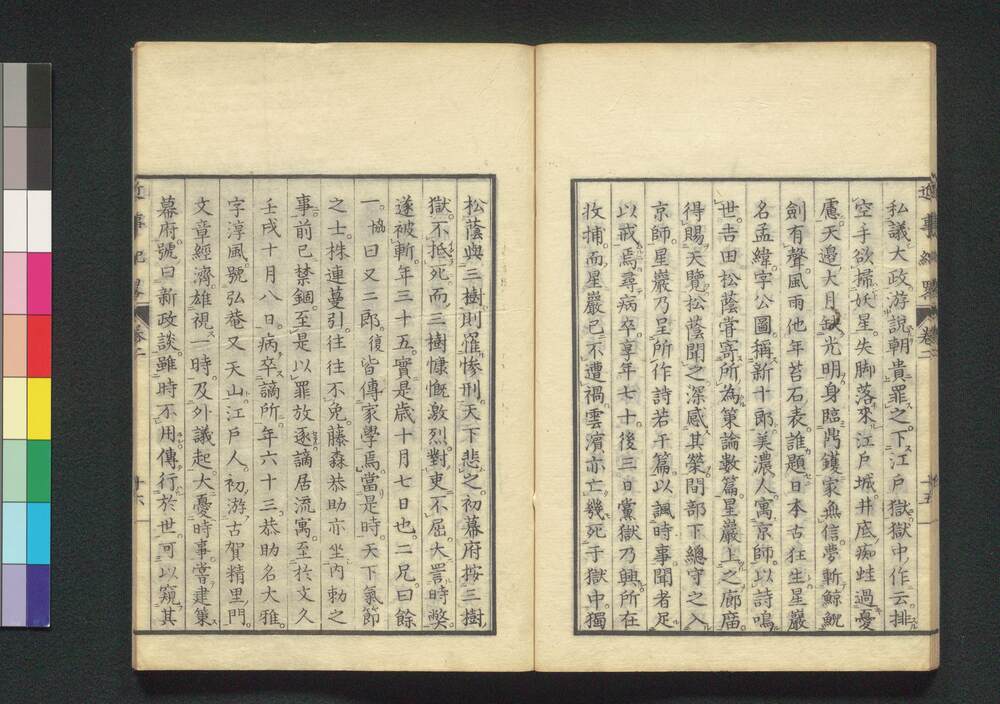 私議大政游說朝貴罪之下江戶獄獄中作云排
空手欲掃妖星失脚落來江戶城井底痴蛙過憂
慮天邊大月缺光明身臨鼎鑊家無信夢斬鯨鯢
劍有聲風雨他年苔石表誰題日本古狂生星巖
名孟緯字公圖稱新十郎美濃人寓京師以詩鳴
世吉田松蔭嘗寄所為策論數篇星巖上之廊庿
得賜天覽松蔭聞之深感其榮間部下總守之入
京師星巖乃呈所作詩若干篇以諷時事聞者足
以戒焉尋病卒享年七十後三日黨獄乃興所在
收捕而星巖已不遭禍雲濱亦亡幾死于獄中獨
松蔭與三樹則罹慘刑天下悲之初幕府按三樹
獄不抵死而三樹慷慨激烈對吏不屈大詈時弊
遂被斬年三十五實是歲十月七日也二兄曰餘
一協曰又二郎復皆傳家學焉當是時天下氣節
之士株連蔓引往往不免藤森恭助亦坐內勅之
事前已禁錮至是以罪放逐謫居流寓至於文久
壬戌十月八日病卒謫所年六十三恭助名大雅
字淳風號弘菴又天山江戶人初游古賀精里門
文章經濟雄視一時及外議起大憂時事嘗建策
幕府號曰新政談雖時不用傳行於世可以窺其
近事紀畧 卷二 十六